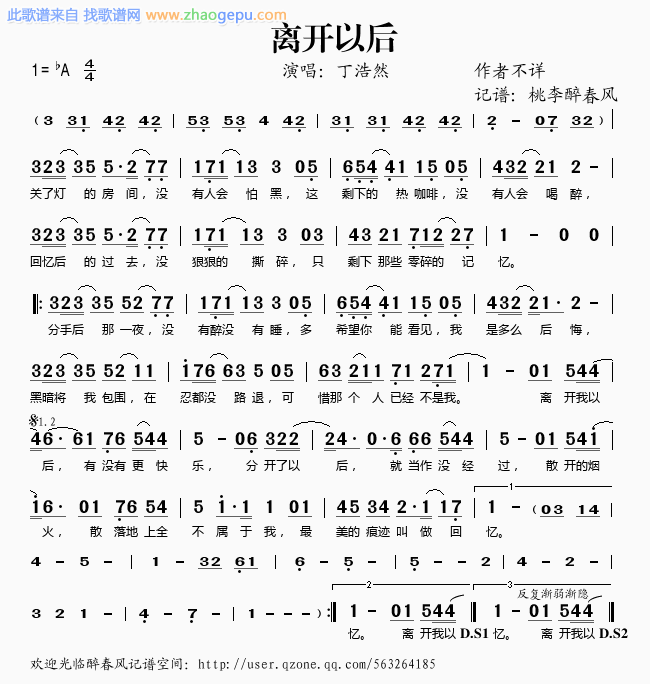 此歌谱来自 找歌谱网 www.zhaogepu.com
离开以后
1=♭A 4/4 演唱：丁浩然 作者不详
记谱：桃李醉春风
(3 31 42 42 | 53 53 4 42 | 31 31 42 42 | 2 - 07 32) |
323 35 5·2 77 | 171 13 3 05 | 654 41 15 05 | 432 21 2 - |
关了灯 的 房 间，没 有人会 怕 黑，这 剩下的 热 咖啡，没 有人会 喝 醉，
323 35 5·2 77 | 171 13 3 03 | 43 21 712 27 | 1 - 0 0 |
回忆后 的 过 去，没 狠狠的 撕 碎，只 剩下 那些 零碎的 记 忆。
‖: 323 35 52 77 | 171 13 3 05 | 654 41 05 05 | 432 21· 2 - |
分手后 那 一夜，没 有醉没 有 睡，多 希望你 能 看见，我 是多么 后 悔，
323 35 52 11 | 176 63 5 05 | 63 211 71 271 | 1 - 01 544 |
黑暗将 我 包围，在 忍都没 路 退，可 惜那 个 人 已经 不是我。 离 开我以
1.2
46· 61 76 544 | 5 - 06 322 | 24· 0·6 66 544 | 5 - 01 541 |
后， 有 没有 更 快 乐， 分 开了以 后， 就 当作 没 经 过， 散 开的烟
16· 01 76 54 | 5 1·1 1 01 | 45 34 2·1 17 | 1 - (03 14 |
火， 散 落地 上全 不 属 于 我，最 美的 痕迹 叫 做 回 忆。
1
4 - 5 - | 1 - 32 61 | 6 - 5 - | 5 - 2 4 | 4 - 5 - |
2 3 反复渐弱渐隐
3 2 1 - | 4 - 7 - | 1 - - - ) :‖ 1 - 01 544 :‖ 1 - 01 544 ‖
忆。 离 开我以 D.S1 忆。 离 开我以 D.S2
欢迎光临醉春风记谱空间：http://user.qzone.qq.com/563264185